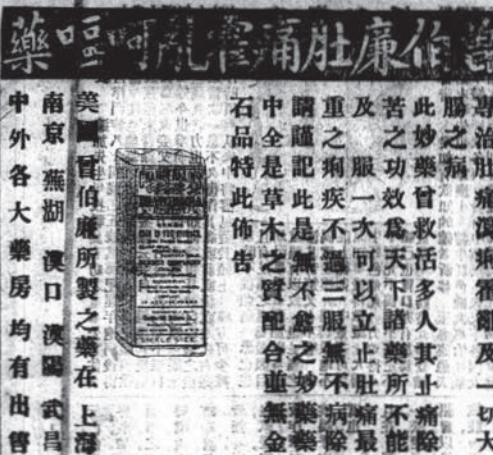 伯廉肚痛霍亂呵嘔藥
專治肚痛瀉痢霍亂及一切大
腸之病
此妙藥曾救活多人其止痛除
苦之功效爲天下諸藥所不能
及 服一次可以立止肚痛最
重之痢疾不過三服無不病除
請謹記此是無不愈之妙藥藥
中全是草木之質配合並無金
石品特此佈告
美國曾伯廉所製之藥在 上海
南京 蕪湖 漢口 漢陽 武昌
中外各大藥房均有出售